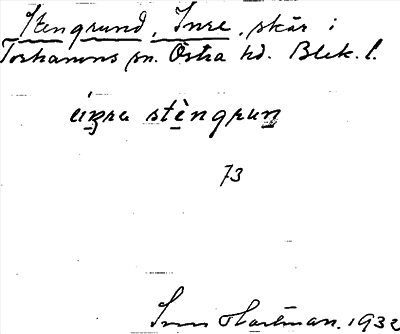 Stengrund, Inre, skär i
Torhamns sn. Östra hd. Blek. l.
íṇra stè̱ngruṉ
73
Sven Hartman. 1932